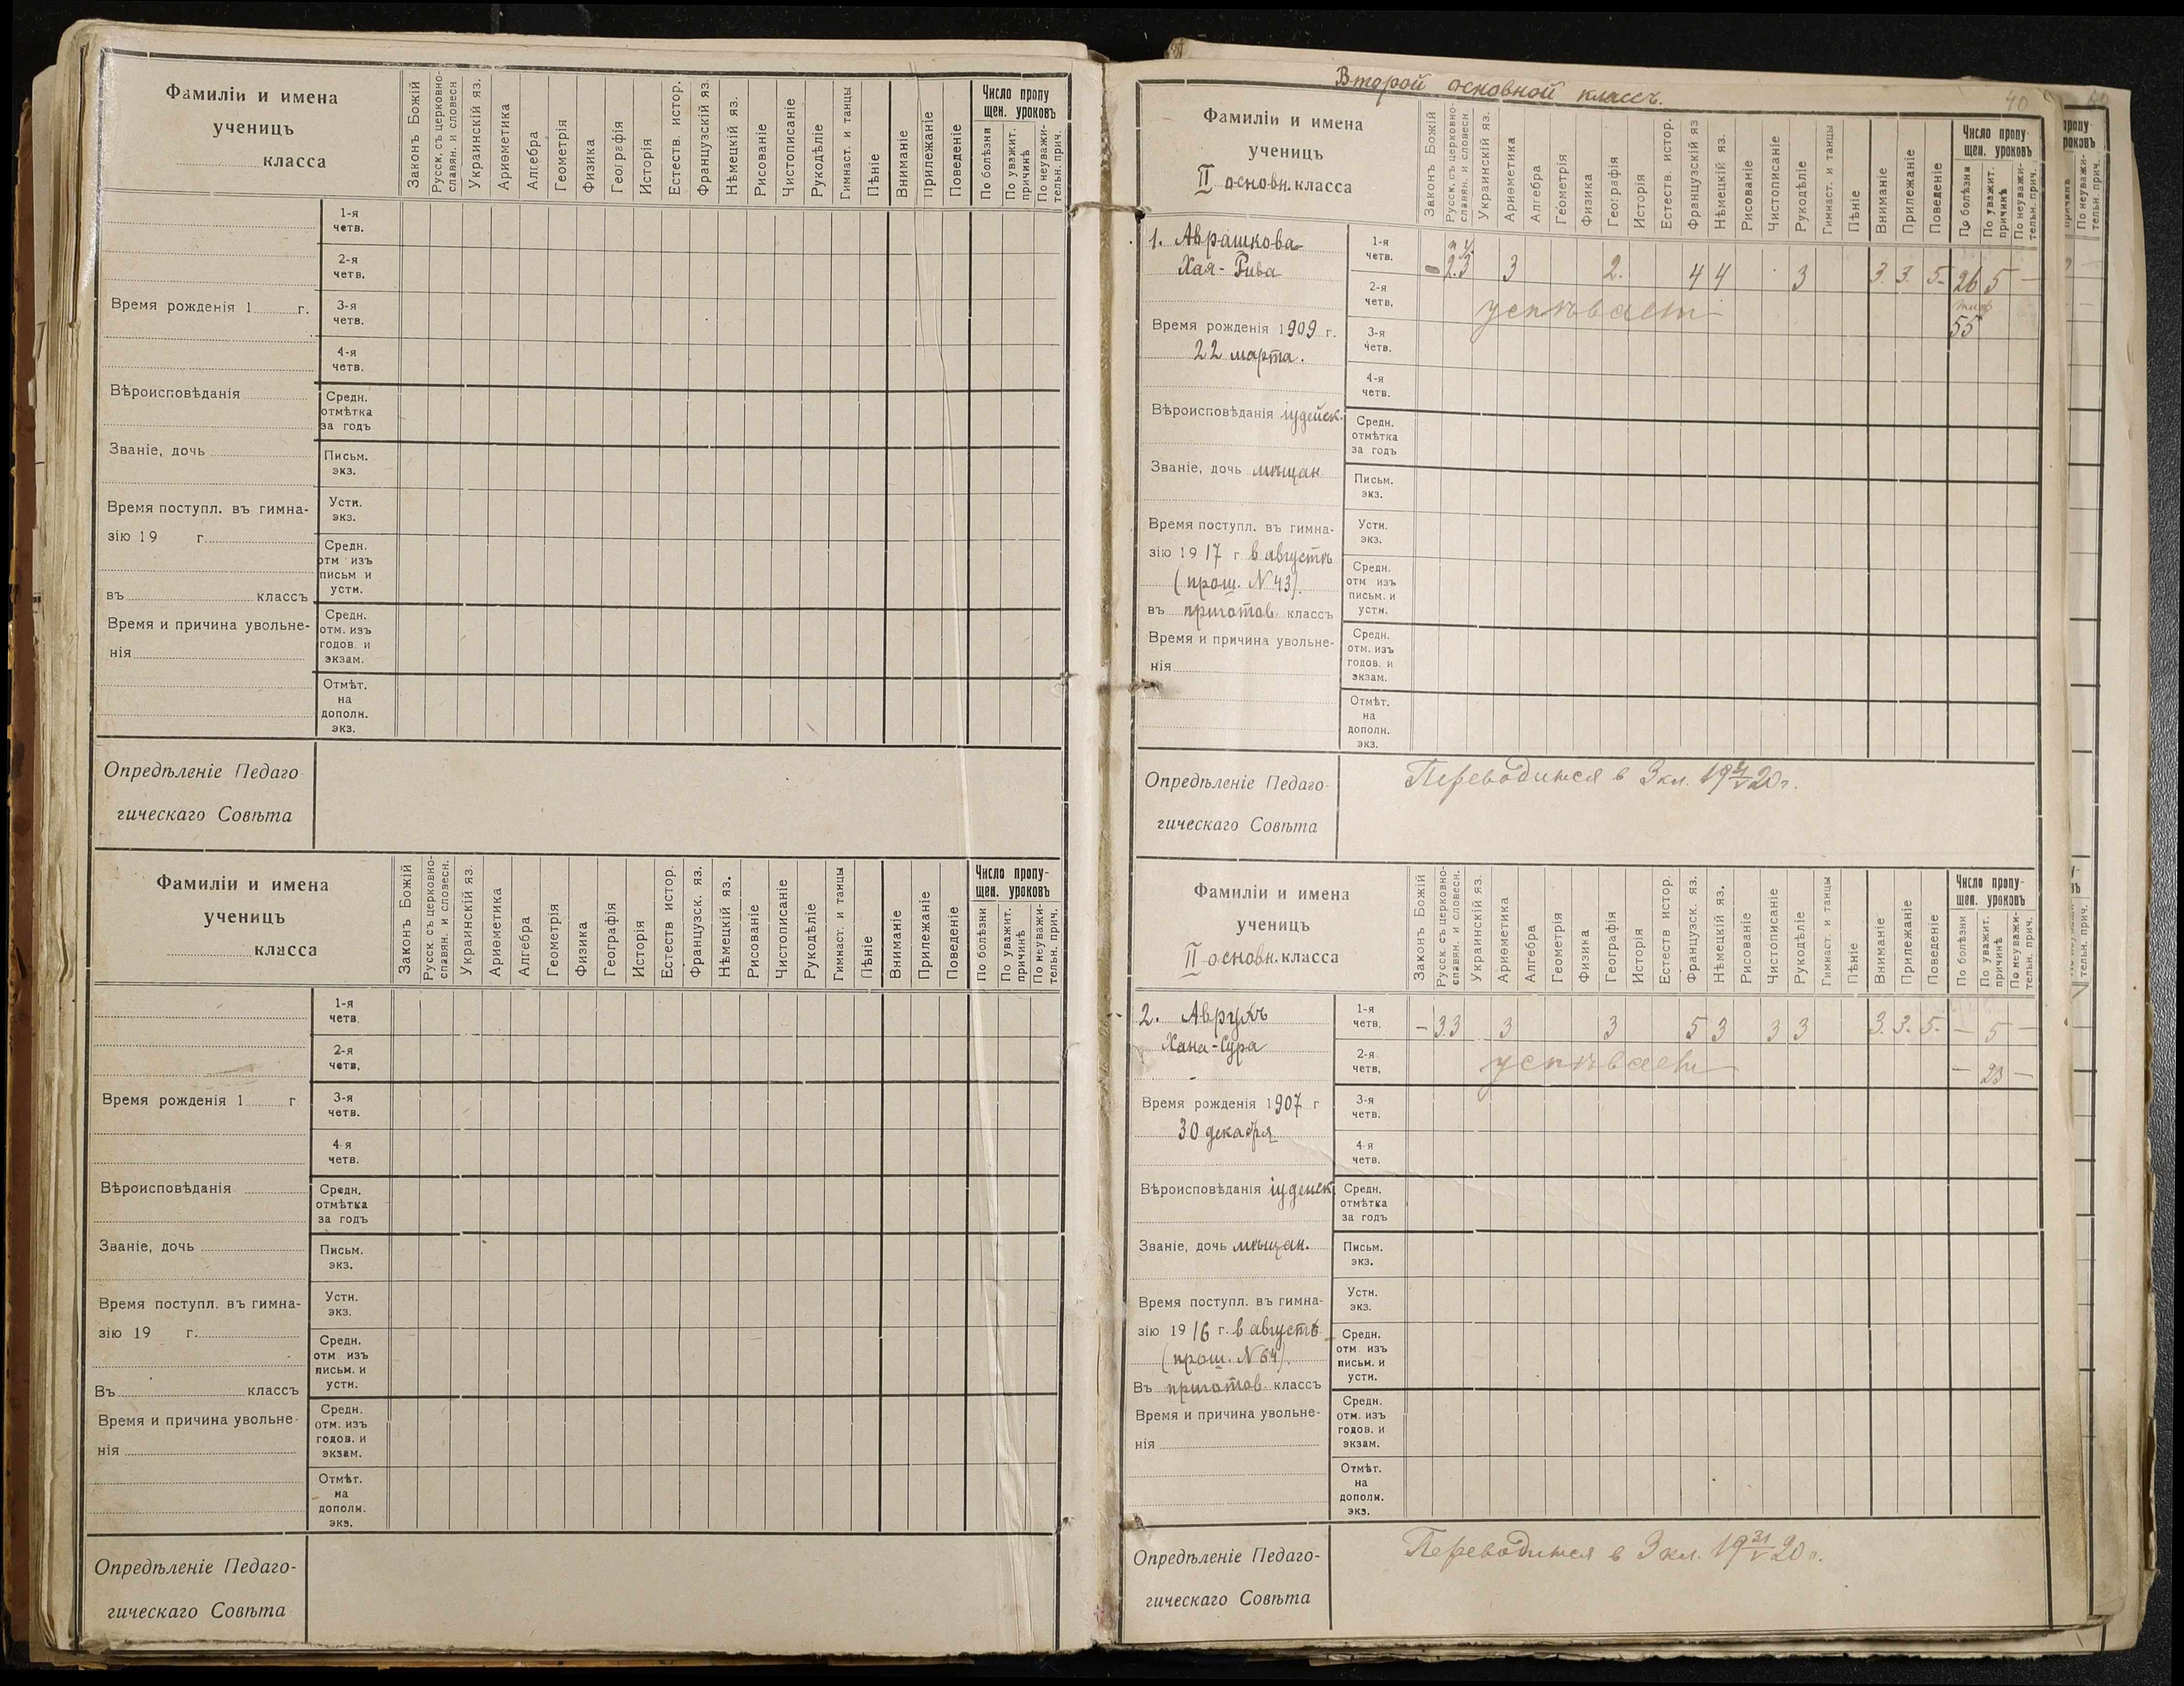 Фамиліи и имена
ученицъ
класса
Законъ Божій
Русск. съ церковно-
славян. и словесн
Украинскій яз.
Ариѳметика
Алгебра
Геометрія
Физика
Географія
Исторія
Естеств. истор.
Французскій яз.
Нѣмецкій яз.
Рисованіе
Чистописаніе
Рукодѣліе
Гимнаст. и танцы
Пѣніе
Вниманіе
Прилежаніе
Поведеніе
Число пропу
щен. уроковъ
По болѣзни
По уважит.
причинѣ
По неуважи-
тельн. прич.
1-я
четв.
2-я
четв.
Время рожденія 1 г.
3-я
четв.
4-я
четв.
Вѣроисповѣданія
Средн.
отмѣтка
за годъ
Званіе, дочь
Письм.
экз.
Время поступл. въ гимна-
зію 19 г.
Устн.
экз.
Средн.
отм изъ
письм и
устн.
въ классъ
Время и причина увольне-
нія
Средн.
отм. изъ
годов. и
экзам.
Отмѣт.
на
дополн.
экз.
Опредѣленіе Педаго
гическаго Совѣта
Фамиліи и имена
ученицъ
класса
Законъ Божій
Русск. съ церковно-
славян. и словесн.
Украинскій яз.
Ариѳметика
Алгебра
Геометрія
Физика
Географія
Исторія
Естеств истор.
Французск. яз.
Нѣмецкій яз.
Рисованіе
Чистописаніе
Рукодѣліе
Гимнаст. и танцы
Пѣніе
Вниманіе
Прилежаніе
Поведеніе
Число пропу-
щен. уроковъ
По болѣзни
По уважит.
причинѣ
По неуважи-
тельн. прич.
1-я
четв.
2-я
четв,
Время рожденія 1 г
3-я
четв.
4-я
четв.
Вѣроисповѣданія
Средн,
отмѣтка
за годъ
Званіе, дочь
Письм.
экз.
Время поступл. въ гимна-
зію 19 г.
Устн.
экз.
Средн.
отм изъ
письм. и
устн.
Въ классъ
Время и причина увольне-
нія
Средн.
отм. изъ
годов. и
экзам.
Отмѣт.
на
дополн.
экз.
Опредѣленіе Педаго-
гическаго Совѣта
Второй основной классъ.
40
Фамиліи и имена
ученицъ
II основн. класса
Законъ Божій
Русск. съ церковно-
славян. и словесн
Украинскій яз.
Ариѳметика
Алгебра
Геометрія
Физика
Географія
Исторія
Естеств. истор.
Французскій яз
Нѣмецкій яз.
Рисованіе
Чистописаніе
Рукодѣліе
Гимнаст. и танцы
Пѣніе
Вниманіе
Прилежаніе
Поведеніе
Число пропу-
щен. уроковъ
По болѣзни
По уважит.
причинѣ
По неуважи-
тельн. прич.
1. Аврашкова
Хая-Рива
1-я
четв.
2.3 3 2. 4 4 3 3. 3. 5- 26 5 —
2-я
четв,
успѣвает
тиф
55
Время рожденія 1909 г.
22 марта.
3-я
четв.
4-я
четв.
Вѣроисповѣданія іудейск.
Средн.
отмѣтка
за годъ
Званіе, дочь мѣщан
Письм.
экз.
Время поступл. въ гимна-
зію 1917 г в августѣ
(прош. N 43).
Устн.
экз.
Средн.
отм изъ
письм. и
устн.
въ приготов. классъ
Время и причина увольне-
нія
Средн.
отм. изъ
годов. и
экзам.
Отмѣт.
на
дополн.
экз.
Опредѣленіе Педаго-
гическаго Совѣта
Переводится в 3 кл. 19 31/V 20 г.
Фамиліи и имена
ученицъ
II основн. класса
Законъ Божій
Русск. съ церковно-
славян. и словесн.
Украинскій яз.
Ариѳметика
Алгебра
Геометрія
Физика
Географія
Исторія
Естеств истор.
Французск. яз.
Нѣмецкій яз.
Рисованіе
Чистописаніе
Рукодѣліе
Гимнаст. и танцы
Пѣніе
Вниманіе
Прилежаніе
Поведеніе
Число пропу-
щен. уроковъ
По болѣзни
По уважит.
причинѣ
По неуважи-
тельн. прич.
2. Аврухъ
Хана-Сура
1-я
четв.
— 3.3 3 3 5 3 3 3 3. 3. 5- — 5 —
2-я
четв,
успѣвает
— 23 —
Время рожденія 1907 г
30 декабря
3-я
четв.
4-я
четв.
Вѣроисповѣданія іудейск
Средн,
отмѣтка
за годъ
Званіе, дочь мѣщан.
Письм.
экз.
Время поступл. въ гимна-
зію 1916 г. в августѣ
(прош. N 64).
Устн.
экз.
Средн.
отм. изъ
письм. и
устн.
Въ приготов. классъ
Время и причина увольне-
нія
Средн.
отм. изъ
годов. и
экзам.
Отмѣт.
на
дополн.
экз.
Опредѣленіе Педаго-
гическаго Совѣта
Переводится в 3 кл. 19 31/V 20 г.